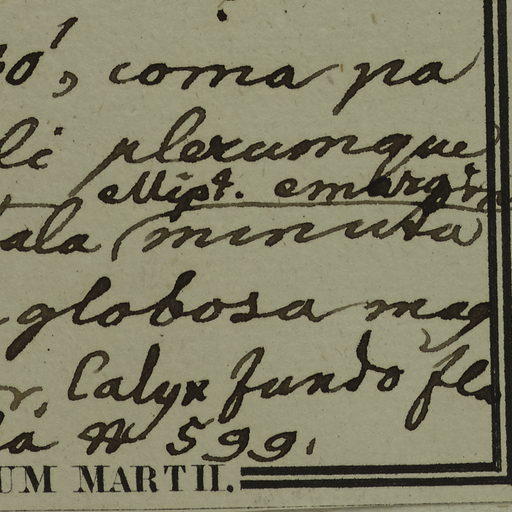 coma pa
li plerumque
ellipt. emargin
ala minuta
globosa mag
r, Calyx fundo fla
la N 599.
UM MARTII.